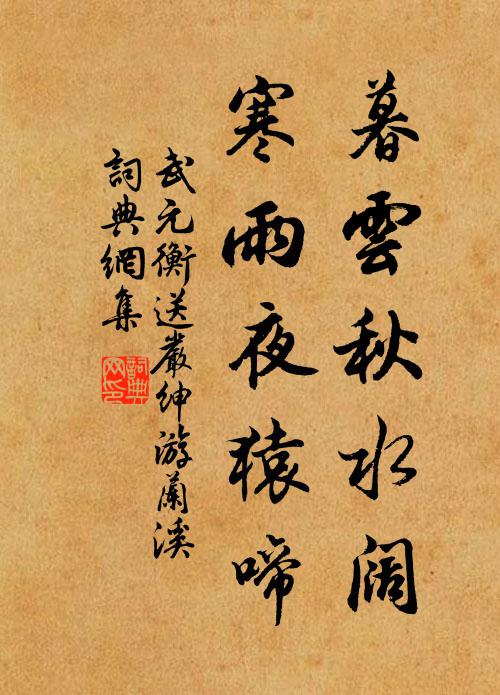 暮雲秋水闊
寒雨夜猿啼
武元衡送嚴紳游蘭溪
詞典網集
詞典網印